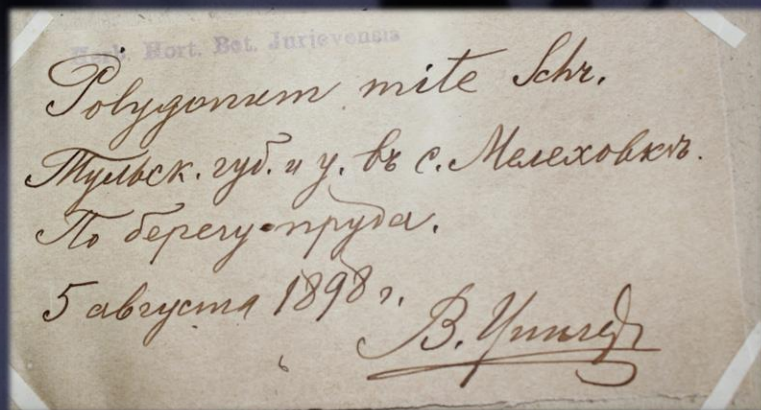 Herb. Hort. Bot. Jurjevensis
Polygonum mite Schr.
Тульск. губ. и у. въ с. Мелеховкѣ.
По берегу пруда.
5 августа 1898 г.
В. Цингер